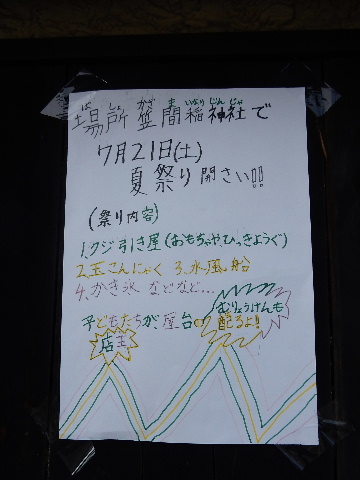 ばしょ かさま いなりじんじゃ
場所 笠間稲神社で
7月21日(土)
夏祭り開さい!!
(祭り内容)
1.クジ引き屋(おもちゃやひっきようぐ)
2.玉こんにゃく 3.水風船
4.かき氷 などなど…
むりょうけんも
子どもたちが、屋台の 配るよ!
店主